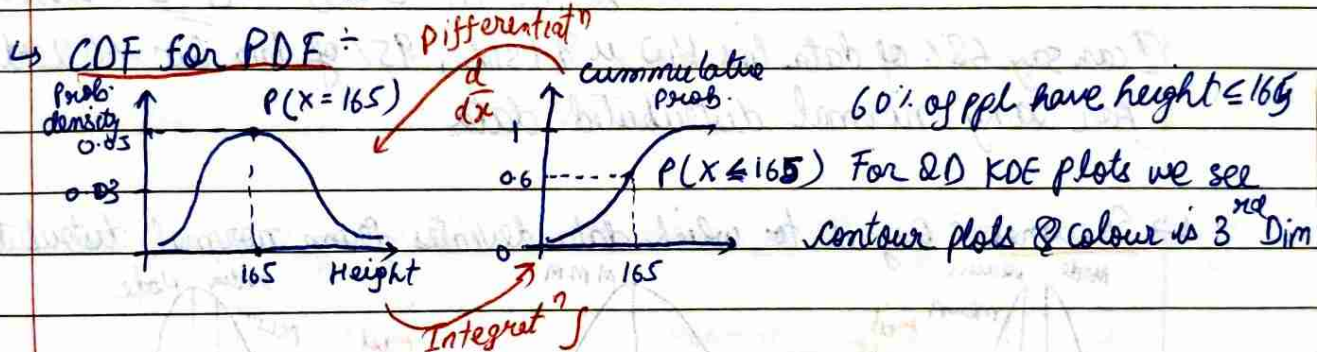 ↳ CDF for PDF ÷
Differentiatⁿ
d/dx
Prob. density
P(X = 165)
0.05
0.03
165 Height
cummulative prob.
1
0.6
P(X ≤ 165)
0
165
Integratⁿ ∫
60% of ppl have height ≤ 165
For 2D KDE plots we see
contour plots & colour is 3rd Dim